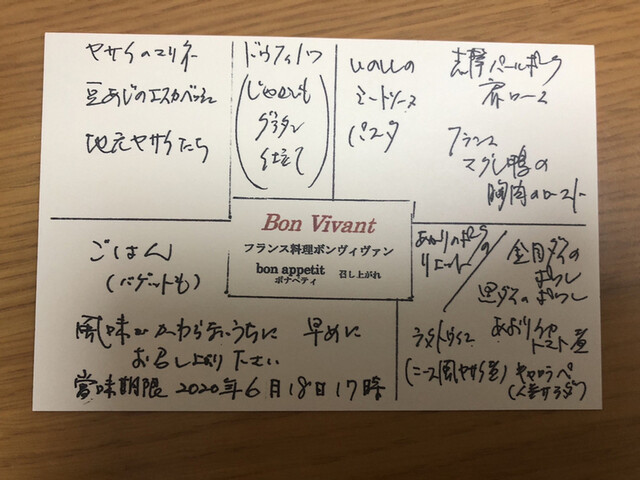 ヤサイのマリネ
豆あじのエスカベッシュ
地元ヤサイたち
ドフィノワ
(じゃがいも
グラタン
仕立て)
いのししの
ミートソース
パスタ
志摩パールポーク
肩ロース
フランス
マグレ鴨の
胸肉のロースト
Bon Vivant
フランス料理ボンヴィヴァン
bon appetit 召し上がれ
ボナペティ
ごはん
(バゲットも)
風味がかわらないうちに 早めに
お召し上り下さい
賞味期限 2020年6月18日17時
ポークの
リエット
金目ダイの
ポワレ
黒ダイのポワレ
ラタトゥイユ
(ニース風ヤサイ煮)
あおりイカ
トマト煮
キャロラペ
(人参サラダ)